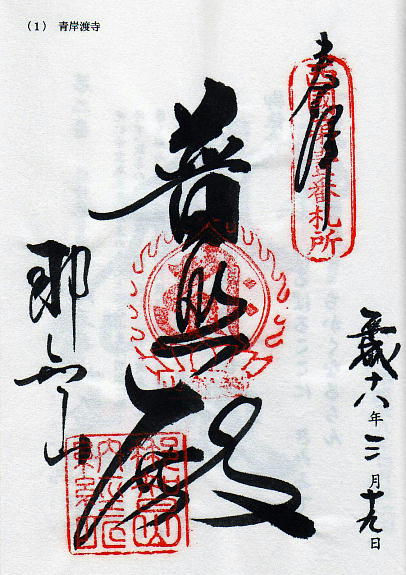 （1） 青岸渡寺
奉拝
西國第壹番札所
普照殿
那智山
平成十八年三月十九日